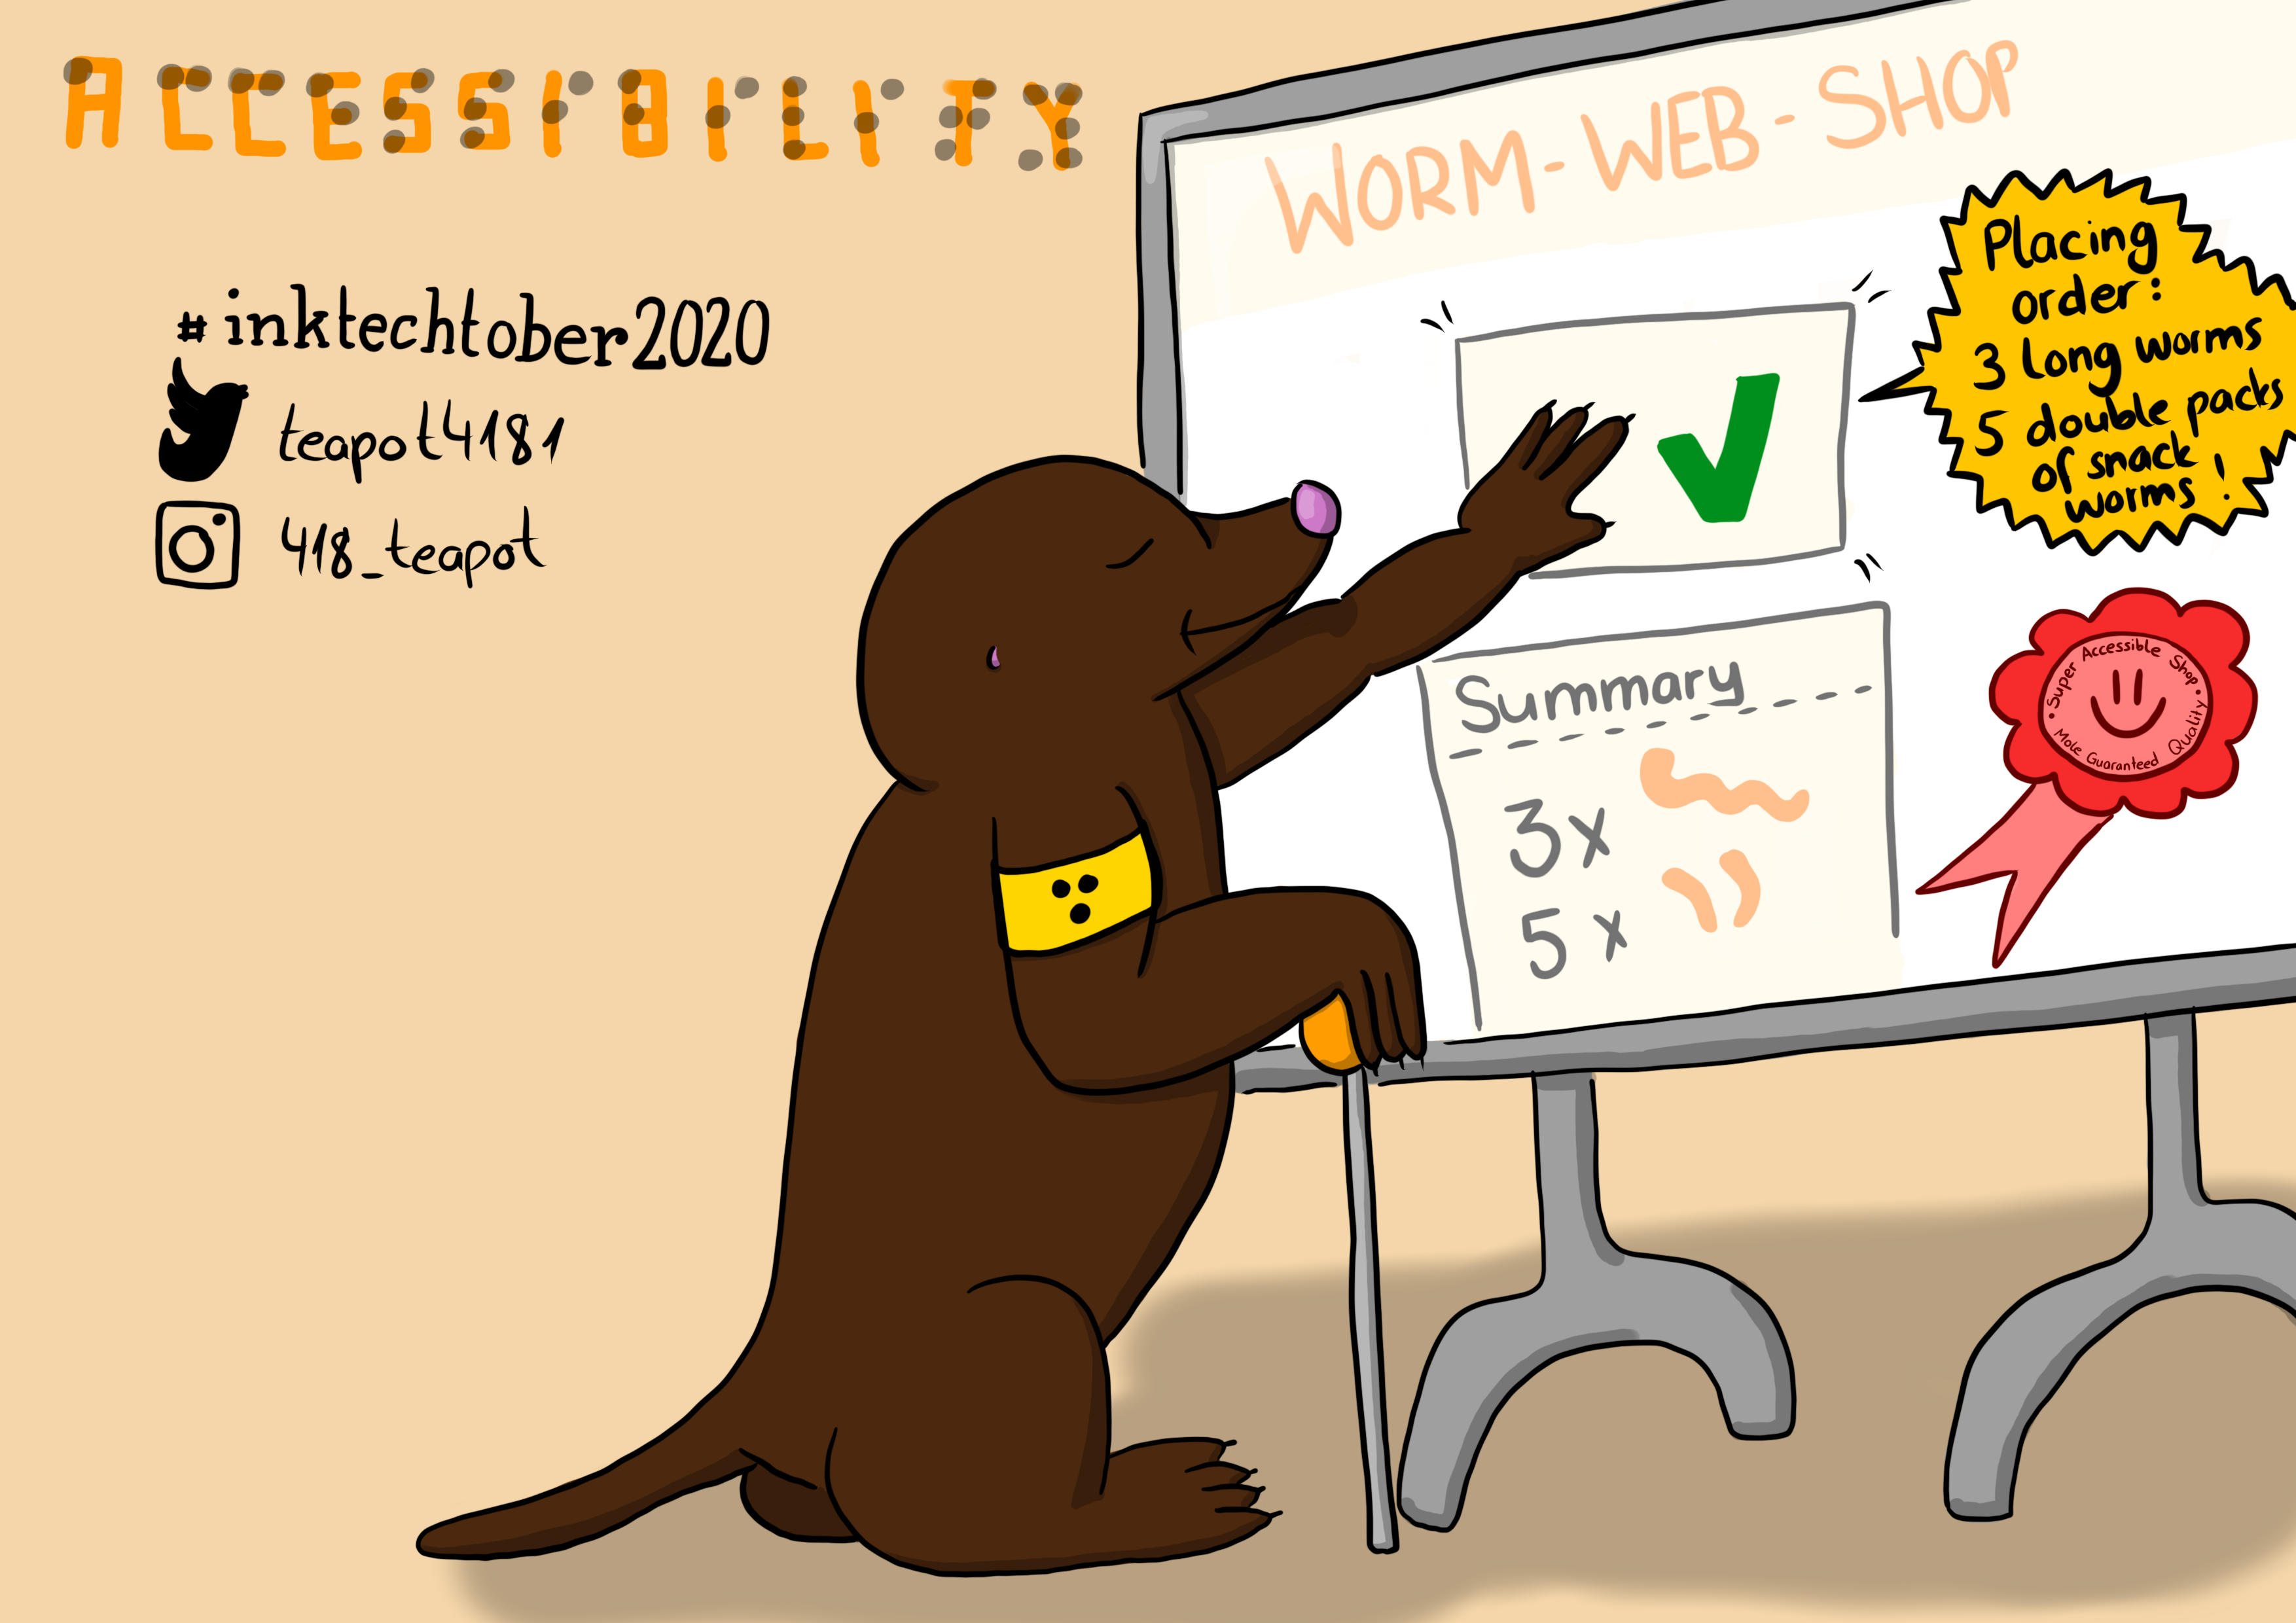 ACCESSIBILITY
#inktechtober2020
teapot4181
418_teapot
WORM-WEB-SHOP
Placing
order:
3 long worms
5 double packs
of snack
worms!
Summary
3x
5x
• Super Accessible Shop •
Mole Guaranteed Quality